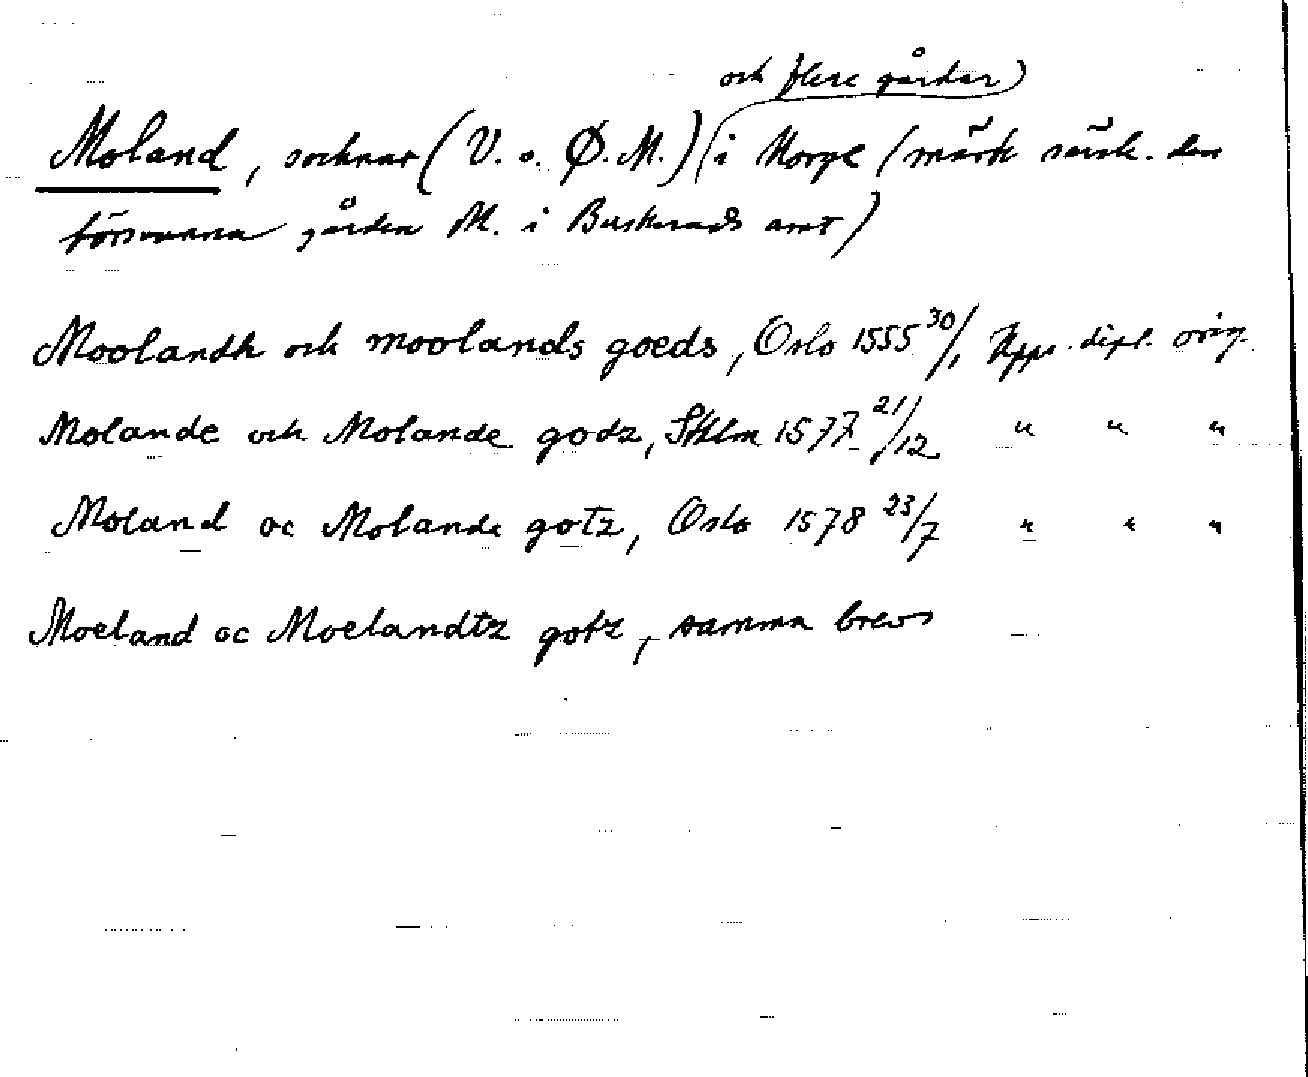 och flere gårdar)
Moland, socknar (V. o. Ø. M.) i Norge (märk särsk. den
försvunna gården M. i Buskeruds amt)
Moolandh och moolands goeds, Oslo 1555 30/1 Upps. dipl. orig.
Molande och Molande godz, Sthlm 1577 21/12 " " "
Moland oc Molande gotz, Oslo 1578 23/7 " " "
Moeland oc Moelandtz gotz, samma brev